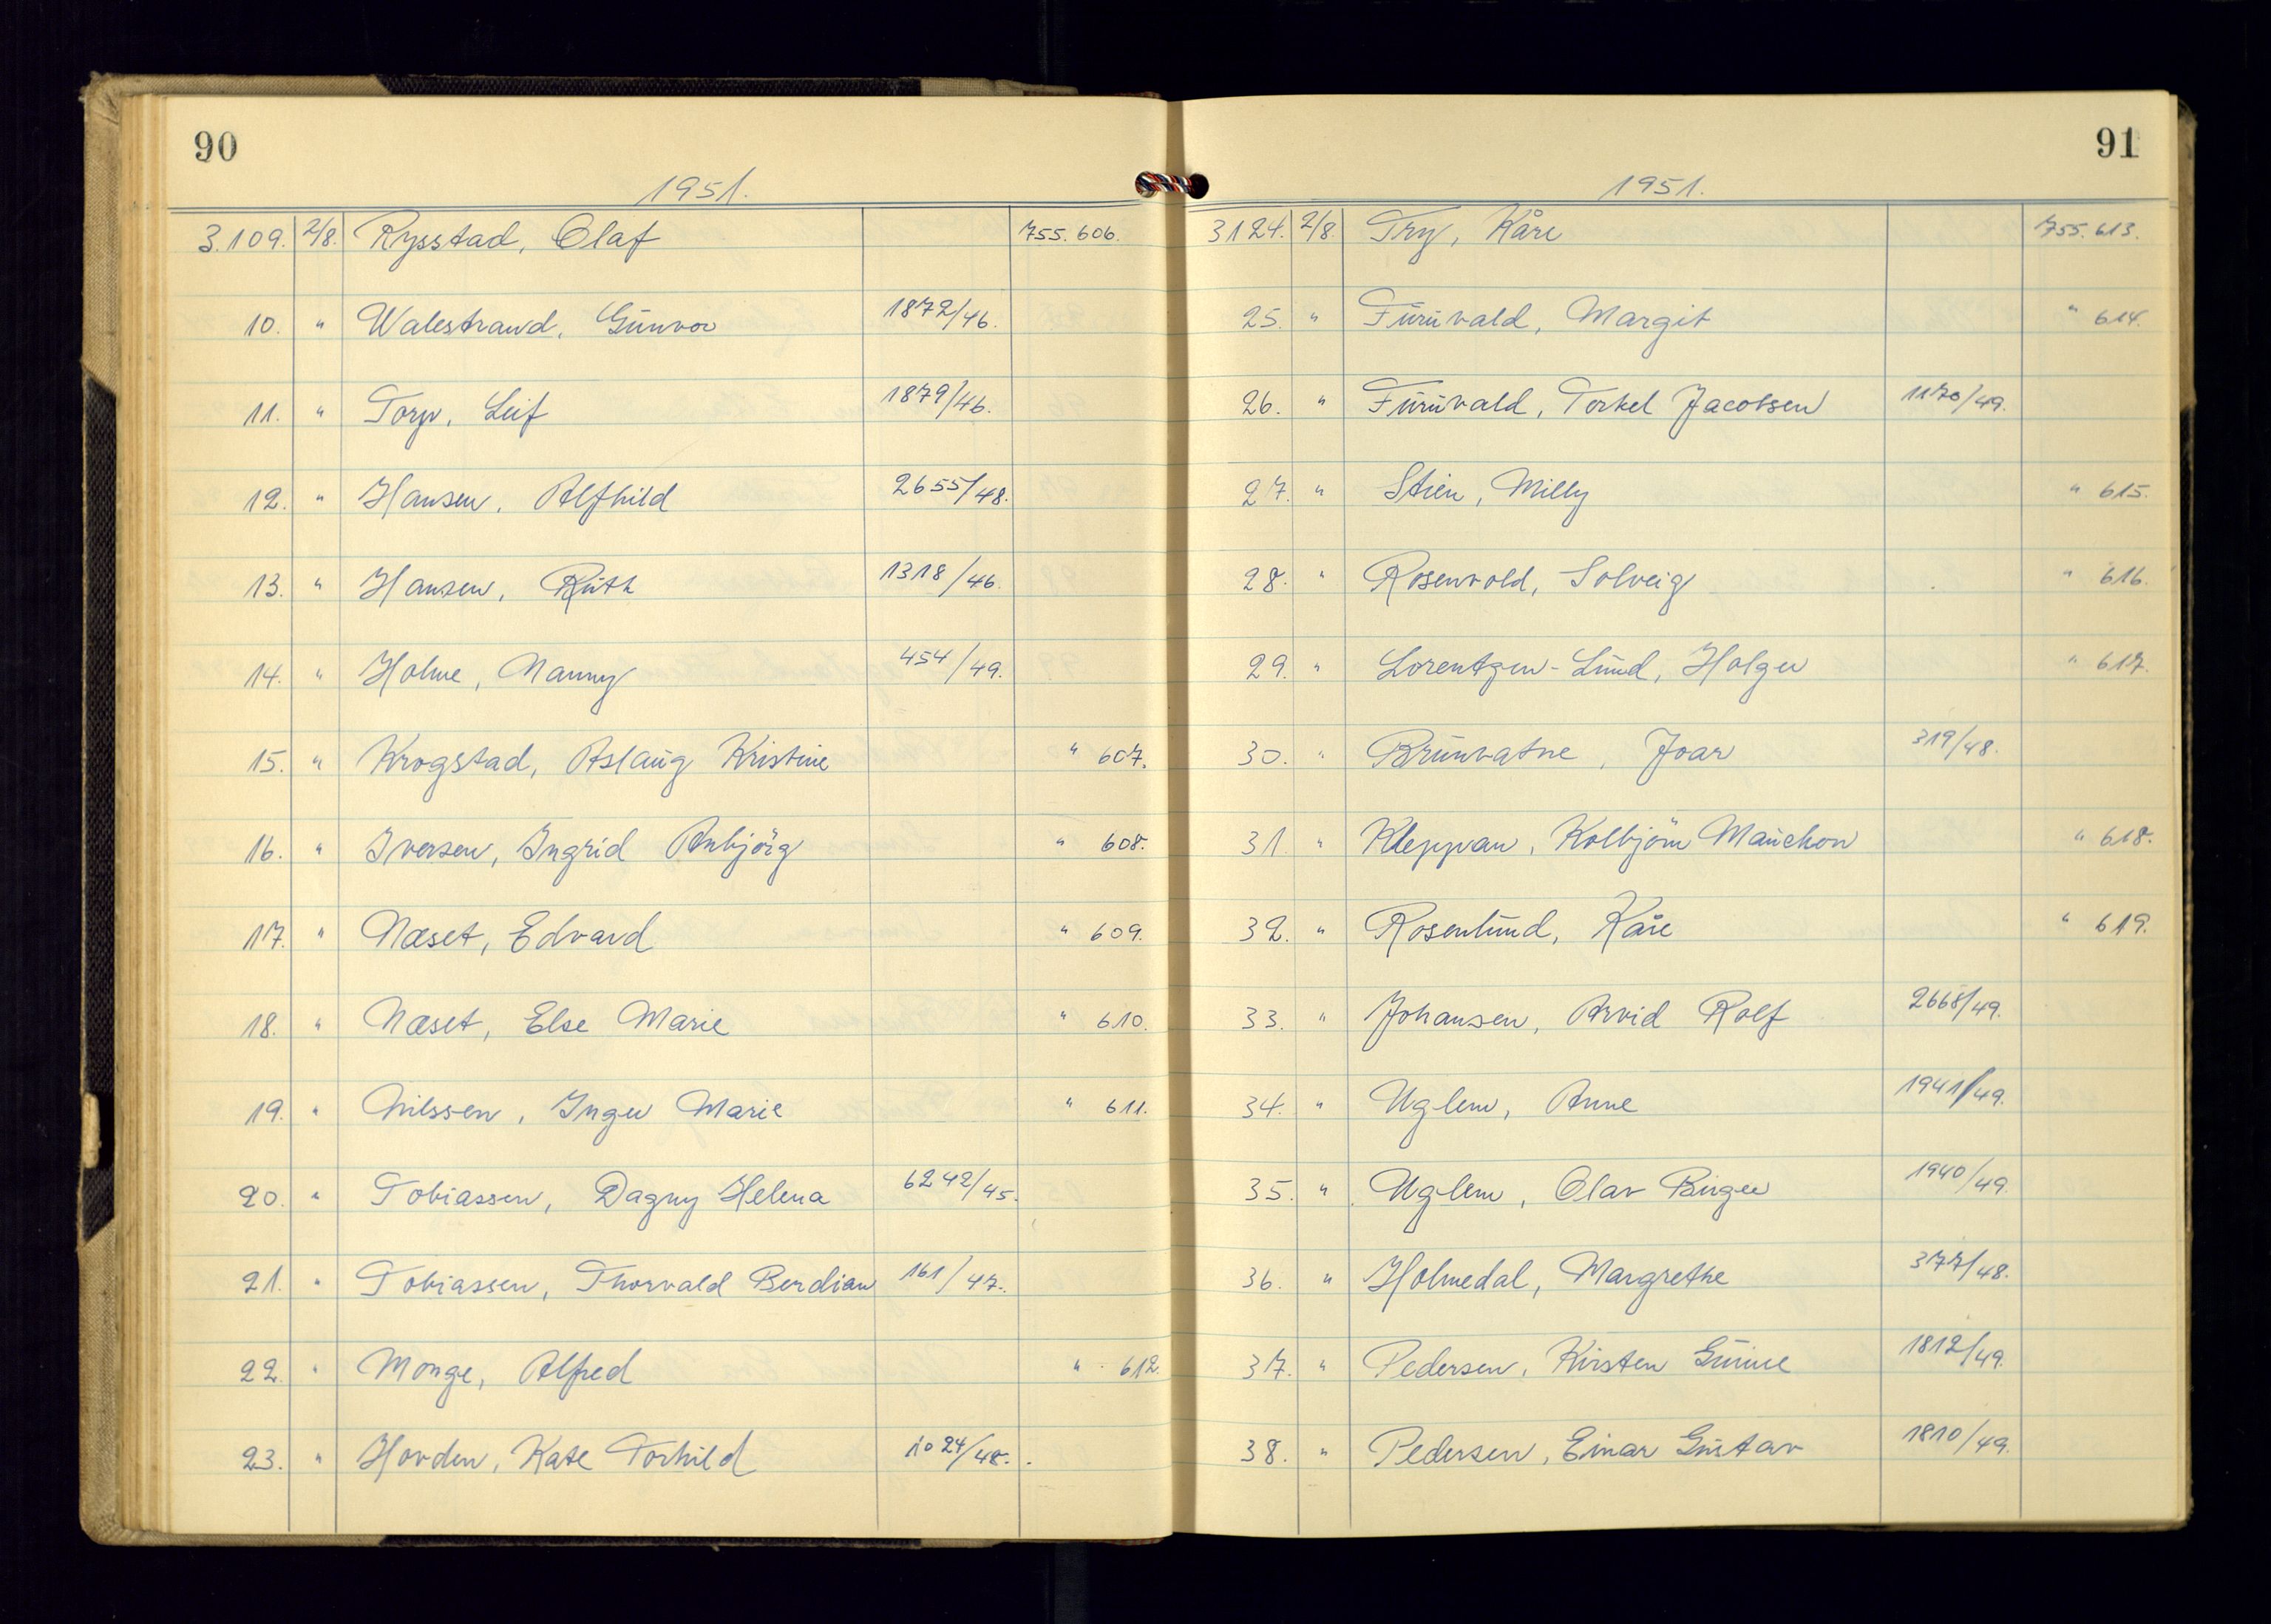 90
1951.
3.109. 2/8. Rysstad, Olaf 755.606.
10. " Walestrand, Gunvor 1872/46.
11. " Torp, Leif 1879/46.
12. " Hansen, Alfhild 2655/48.
13. " Hansen, Ruth 1318/46.
14. " Holme, Nanny 454/49.
15. " Krogstad, Aslaug Kristine " 607.
16. " Iversen, Ingrid Anbjörg " 608.
17. " Næset, Edvard " 609.
18. " Næset, Else Marie " 610.
19. " Nilssen, Inger Marie " 611.
20. " Tobiassen, Dagny Helena 6242/45.
21. " Tobiassen, Thorvald Berdian 161/47.
22. " Monge, Alfred " 612.
23. " Hovden, Kate Torhild 1024/48.
91
1951.
3124. 2/8. Try, Kåre 755.613.
25. " Furuvald, Margit " 614.
26. " Furuvald, Torkel Jacobsen 1170/49.
27. " Stien, Milly " 615.
28. " Rosenvold, Solveig " 616.
29. " Lorentzen-Lund, Holger " 617.
30. " Brunvatne, Joar 319/48.
31. " Kleppan, Kolbjörn " 618.
32. " Rosenlund, Kåre " 619.
33. " Johansen, Arvid Rolf 2668/49.
34. " Uglem, Anne 1941/49.
35. " Uglem, Olav Birger 1940/49.
36. " Holmedal, Margrethe 377/48.
37. " Pedersen, Kirsten 1812/49.
38. " Pedersen, Einar Gustav 1810/49.